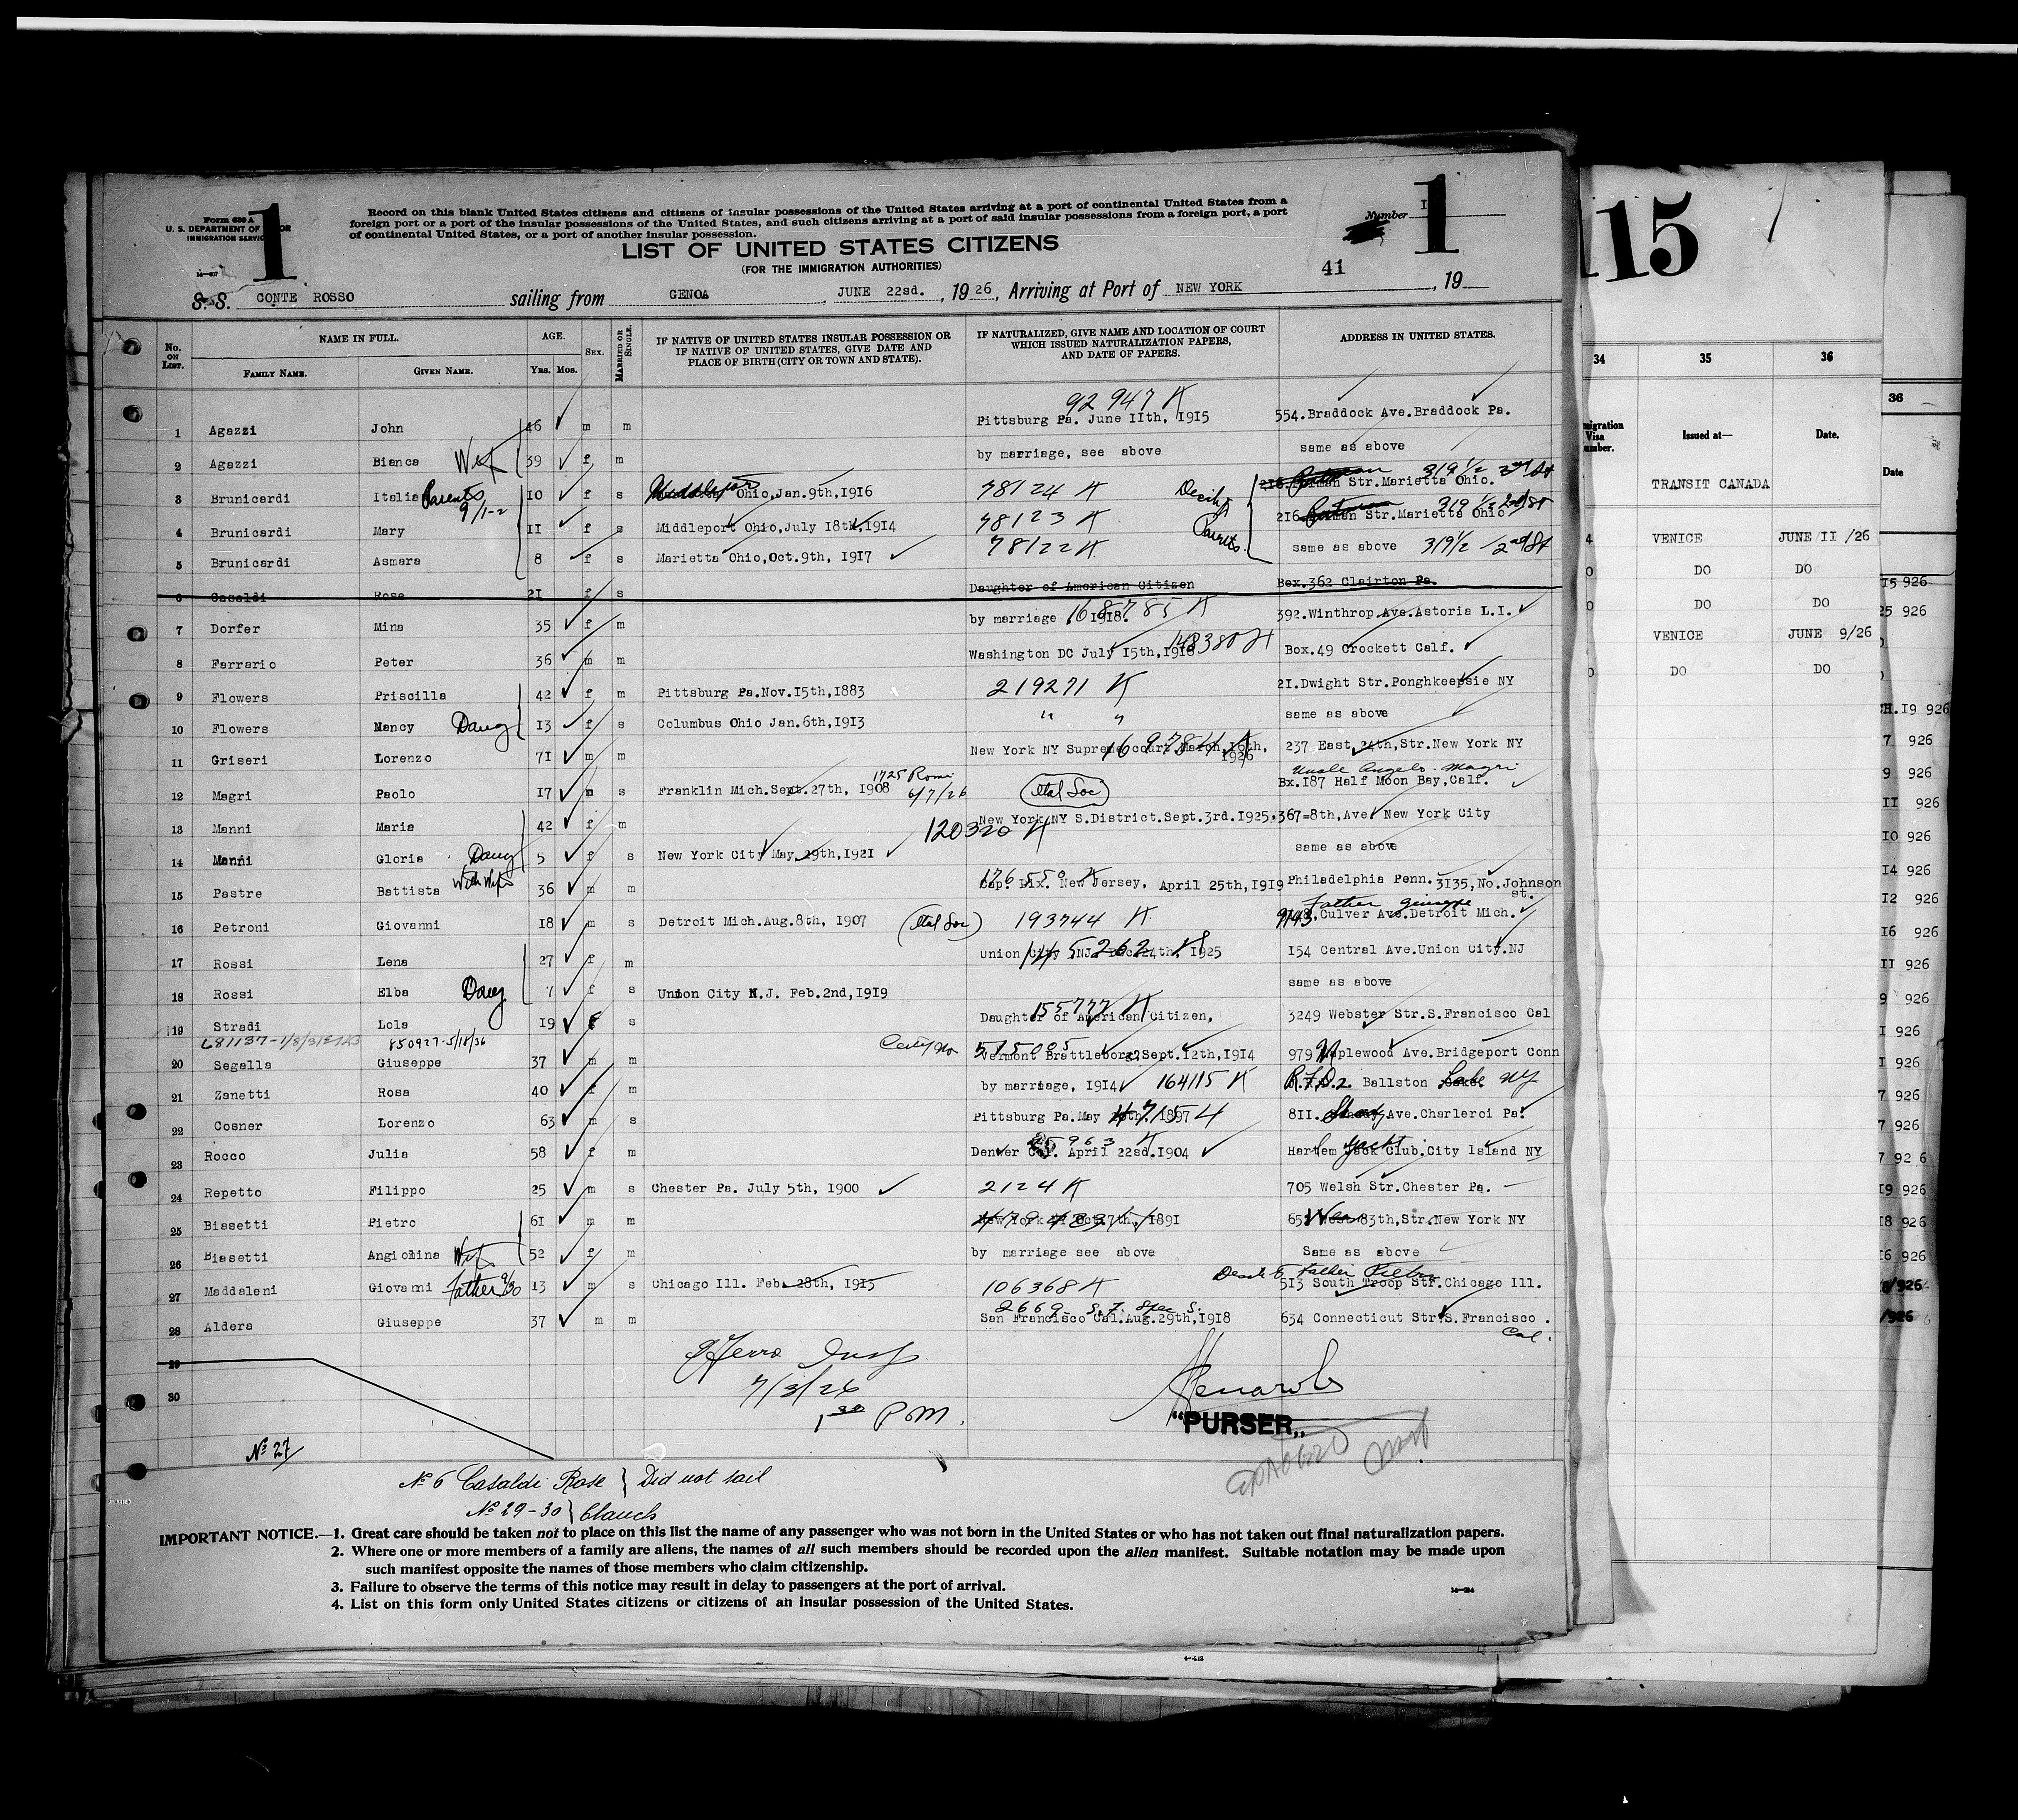 Form 630 A
U. S. DEPARTMENT OF
IMMIGRATION SERVICE
1
Record on this blank United States citizens and citizens of insular possessions of the United States arriving at a port of continental United States from a
foreign port or a port of the insular possessions of the United States, and such citizens arriving at a port of said insular possessions from a foreign port, a port
of continental United States, or a port of another insular possession.
Number I
1
LIST OF UNITED STATES CITIZENS
(FOR THE IMMIGRATION AUTHORITIES)
41
S. S. CONTE ROSSO sailing from GENOA, JUNE 22sd., 1926, Arriving at Port of NEW YORK, 19
No. ON LIST. NAME IN FULL. FAMILY NAME. GIVEN NAME. AGE. YRS. MOS. SEX. MARRIED OR SINGLE. IF NATIVE OF UNITED STATES INSULAR POSSESSION OR IF NATIVE OF UNITED STATES, GIVE DATE AND PLACE OF BIRTH (CITY OR TOWN AND STATE). IF NATURALIZED, GIVE NAME AND LOCATION OF COURT WHICH ISSUED NATURALIZATION PAPERS, AND DATE OF PAPERS. ADDRESS IN UNITED STATES.
92947 K
1 Agazzi John 46 m m Pittsburg Pa. June IIth, I9I5 554.Braddock Ave.Braddock Pa.
2 Agazzi Bianca Wife 39 f m by marriage, see above same as above
3 Brunicardi Italia Parents 9/1-2 IO f s Middleport Ohio,Jan.9th,I9I6 78124 K Str.Marietta Ohio. 319 1/2 3rd St
4 Brunicardi Mary II f s Middleport Ohio,July I8th,I9I4 78123 K 2I6 Str.Marietta Ohio 319 1/2 2nd St
5 Brunicardi Asmara 8 f s Marietta Ohio,Oct.9th, I9I7 78122 K Parents. same as above 319 1/2 2nd St
6 Casaldi Rose 2I f s Daughter of American Citizen Box.362 Clairton Pa.
7 Dorfer Mina 35 f m by marriage I9I8. 168785 K 392.Winthrop.Ave.Astoria L.I.
8 Ferrario Peter 36 m m Washington DC July I5th,I9I8 148380 K Box.49 Crockett Calf.
9 Flowers Priscilla 42 f m Pittsburg Pa.Nov.I5th,I883 219271 K 2I.Dwight Str.Ponghkeepsie NY
10 Flowers Nancy Daug 13 f s Columbus Ohio Jan.6th,I9I3 " " same as above
11 Griseri Lorenzo 7I m m New York NY Supreme court March,I6th, I926 169784 K 237 East 24th,Str.New York NY
12 Magri Paolo I7 m s Franklin Mich.Sept.27th, I908 1725 Rome 6/7/26 (Ital Soc) Uncle Angelo Magri Bx.I87 Half Moon Bay,Calf.
13 Manni Maria 42 f m 120320 K New York NY S.District.Sept.3rd.I925, 367=8th,Ave New York City
14 Manni Gloria Daug 5 f s New York City May 29th,I92I same as above
15 Pastre Battista With Wife 36 m m 176550 K Dix. New Jersey, April 25th,I9I9 Philadelphia Penn. 3I35,No.Johnson st.
16 Petroni Giovanni I8 m s Detroit Mich.Aug.8th, I907 (Ital Soc) 193744 K Father Giuseppe 9143,Culver Ave.Detroit Mich.
17 Rossi Lena 27 f m Union City NJ Dec.24th. I925 145262 K I54 Central Ave.Union City.NJ
18 Rossi Elba Daug 7 f s Union City N.J. Feb.2nd,I9I9 same as above
19 Stradi Lola I9 f s 155777 K Daughter of American Citizen, 3249 Webster Str.S.Francisco Cal
850927-5/18/36
20 Segalla Giuseppe 37 m m 515005 Vermont Brattleboro,Sept.I2th,I9I4 979 Maplewood Ave.Bridgeport Conn
21 Zanetti Rosa 40 f m by marriage, I9I4 164115 K R.F.D.2 Ballston Lake NY
22 Cosner Lorenzo 63 m s Pittsburg Pa.May I897 47154 8II. Shady Ave.Charleroi Pa.
23 Rocco Julia 58 f m 25963 K Denver Col. April 22sd.I904 Harlem Yacht Club.City Island NY
24 Repetto Filippo 25 m s Chester Pa. July 5th, I900 2124 K 705 Welsh Str.Chester Pa.
25 Biasetti Pietro 6I m m New York NY Oct.I7th, I89I West 83th,Str.New York NY
26 Biasetti Angiolina Wife 52 f m by marriage see above Same as above
27 Maddaleni Giovanni Father 9/30 I3 m s Chicago Ill. Feb. 28th, I9I3 106368 K Father Pietro 5I3 South Troop Str.Chicago Ill.
28 Aldera Giuseppe 37 m m 2669 S.F. Spec S. San Francisco Cal.Aug.29th,I9I8 634 Connecticut Str.S.Francisco. Cal.
29
30
Insp
7/3/26
1 30 P.M.
"PURSER"
No 27
No 6 Casaldi Rose } Did not sail
No 29-30 } blanch
IMPORTANT NOTICE.—1. Great care should be taken not to place on this list the name of any passenger who was not born in the United States or who has not taken out final naturalization papers.
2. Where one or more members of a family are aliens, the names of all such members should be recorded upon the alien manifest. Suitable notation may be made upon
such manifest opposite the names of those members who claim citizenship.
3. Failure to observe the terms of this notice may result in delay to passengers at the port of arrival.
4. List on this form only United States citizens or citizens of an insular possession of the United States.
115
34 35 36
Visa Issued at— Date.
TRANSIT CANADA
VENICE JUNE II /26
DO DO
DO DO
VENICE JUNE 9/26
DO DO
36
Date
I5 926
25 926
H.I9 926
7 926
9 926
II 926
IO 926
I4 926
I2 926
I6 926
II 926
9 926
I 926
I 926
7 926
7 926
7 92 6
I9 926
I8 926
I6 926
8/926
/926